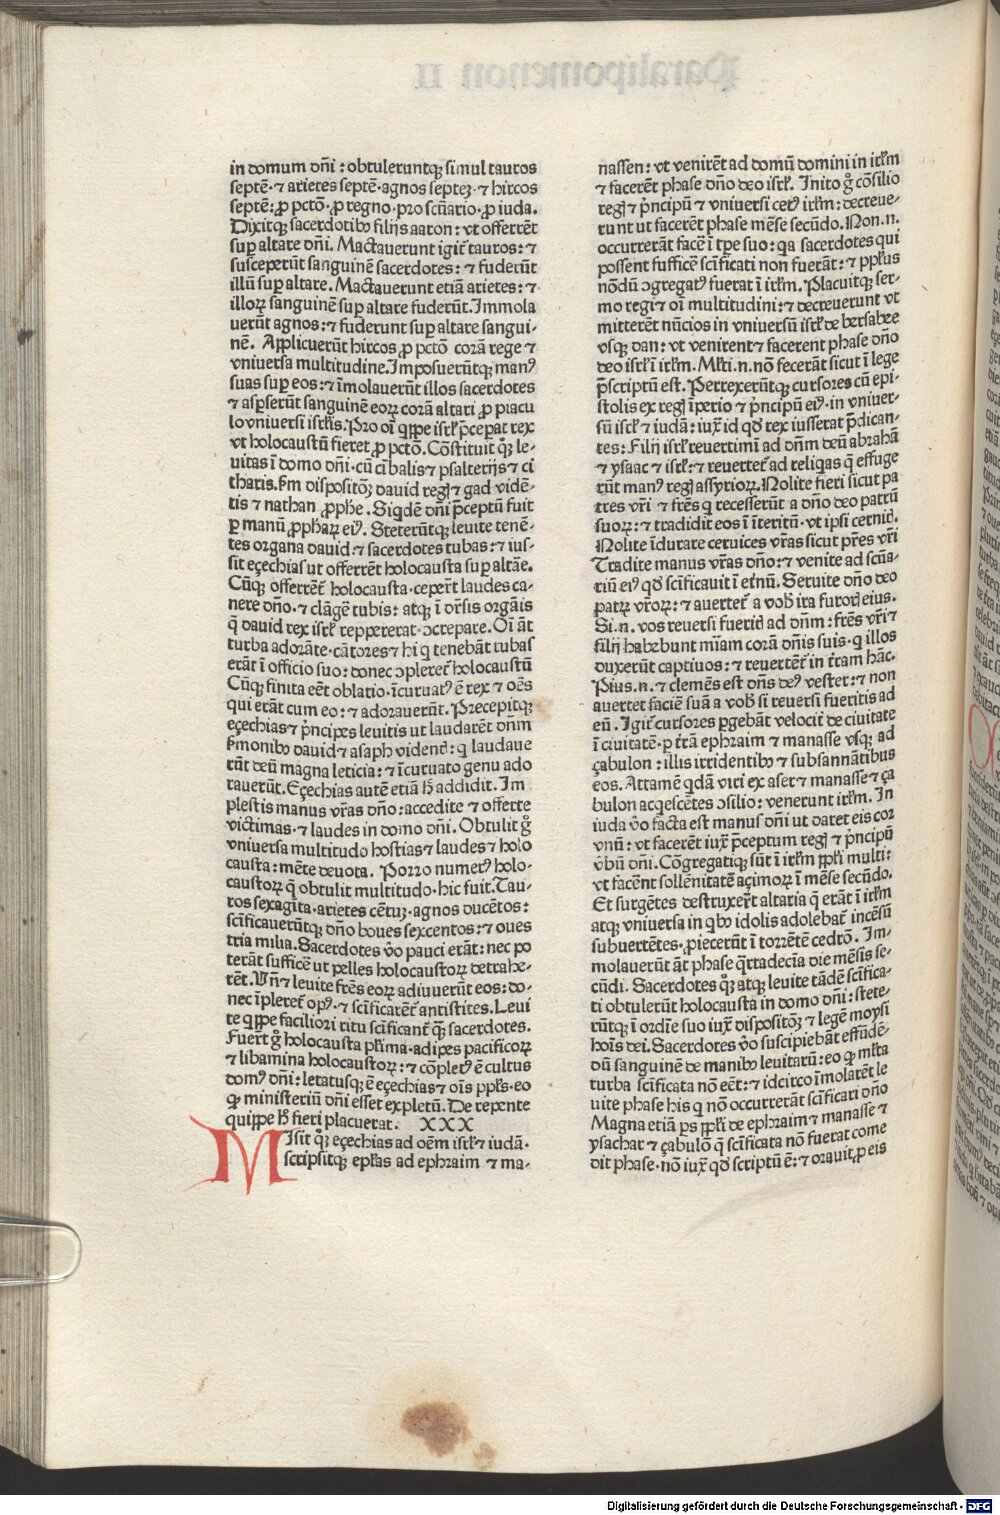 in domum dñi : obtuleruntqꝫ simul tauros
septē· ⁊ arietes septē· agnos septeꝫ· ⁊ hircos
septē: ꝓ pctō· ꝓ regno· pro scūario· ꝓ iuda.
Dixitqꝫ sacerdotibꝰ filijs aaron: vt offerrēt
suꝑ altare dñi. Mactauerunt igit᷑ tauros: ⁊
susceperūt sanguinē sacerdotes: ⁊ fuderūt
illū suꝑ altare. Mactauerunt etiā arietes: ⁊
illoꝝ sanguinē suꝑ altare fuderūt. Immola
uerūt agnos: ⁊ fuderunt suꝑ altare sangui-
nē. Applicuerūt hircos ꝓ pctō corā rege ⁊
vniuersa multitudine. Imposuerūtqꝫ manꝰ
suas suꝑ eos: ⁊ īmolauerūt illos sacerdotes
⁊ asꝑserūt sanguinē eoꝝ corā altari ꝓ piacu
lo vniuersi isrl̄is. Pro oī qͥppe isrl̄ p̄ceꝑat rex
vt holocaustū fieret ꝓ pctō. Cōstituit qꝫ le-
uitas ī domo dñi· cū cībalis ⁊ psalterijs ⁊ ci
tharis. ẜm dispositōꝫ dauid regꝯ ⁊ gad vidē-
tis ⁊ nathan ꝓphe. Siqͥdē dñi p̄ceptū fuit
ꝑ manū ꝓphaꝝ eiꝰ. Steterūtqꝫ leuite tenē-
tes organa dauid· ⁊ sacerdotes tubas: ⁊ ius-
sit eçechias ut offerrēt holocausta suꝑ altāe.
Cūqꝫ offerrēt᷑ holocausta· ceꝑer̄t laudes ca-
nere dño· ⁊ clāgē tubis: atqꝫ ī dr̄sis orgāis
q̄ dauid rex isrl̄ reppererat· ↄcrepare. Oī āt
turba adorāte· cātores ⁊ hi q tenebāt tubas
erāt ī officio suo: donec ↄpleret᷑ holocaustū
Cūqꝫ finita eēt oblatio· īcuruatꝰ ē rex ⁊ oēs
qui erāt cum eo: ⁊ adorauerūt. Precepitqꝫ
eçechias ⁊ pͥncipes leuitis ut laudarēt dñm
ẜmonibꝰ dauid ⁊ asaph videnē: q laudaue
rūt deū magna leticia: ⁊ īcuruato genu ado
rauerūt. Eçechias autē etiā h̄ addidit. Im
plestis manus vr̄as dño: accedite ⁊ offerte
victimas· ⁊ laudes in domo dñi. Obtulit g͛
vniuersa multitudo hostias ⁊ laudes ⁊ holo
causta: mēte deuota. Porro numerꝰ holo-
caustoꝝ q̄ obtulit multitudo· hic fuit. Tau-
ros sexagīta· arietes cētuꝫ· agnos ducētos:
scīficauerūtqꝫ dño boues sexcentos: ⁊ oues
tria milia. Sacerdotes v̊o pauci erāt: nec po
terāt sufficē ut pelles holocaustoꝝ detrahe-
rēt. Vñ ⁊ leuite fr̄es eoꝝ adiuuerūt eos: do-
nec īpleret᷑ opꝰ· ⁊ scīficarēt᷑ antistites. Leui
te qͥppe faciliori ritu scīficant᷑ qꝫ̄ sacerdotes.
Fuer̄t g͛ holocausta pl̄ima· adipes pacificoꝝ
⁊ libamina holocaustoꝝ: ⁊ cōpletꝰ ē cultus
domꝰ dñi: letatusqꝫ ē eçechias ⁊ oīs ppl̄s· eo
qͦ ministeriū dñi esset expletū. De repente
quippe h̄ fieri placuerat. XXX
Misit qꝫ eçechias ad oēm isrl̄ ⁊ iudā·
scripsitqꝫ epl̄as ad ephraim ⁊ ma-
nassen: vt venirēt ad domū domini in irl̄m
⁊ facerēt phase dño deo isrl̄. Inito g͛ cōsilio
regꝯ ⁊ pͥncipū ⁊ vniuersi cetꝰ irl̄m: decreue-
runt ut facerēt phase mēse secūdo. Non .n.
occurrerāt facē ī tꝑe suo: qa sacerdotes qui
possent sufficē scīficati non fuerāt: ⁊ ppl̄us
nōdū ↄgregatꝰ fuerat ī irl̄m. Placuitqꝫ ser-
mo regi ⁊ oī multitudini: ⁊ decreuerunt vt
mitterēt nūcios in vniuersū isrl̄ de bersabee
vsqꝫ dan: vt venirent ⁊ facerent phase dño
deo isrl̄ ī irl̄m. Ml̄ti .n. nō fecerāt sicut ī lege
p̄scriptū est. Perrexerūtqꝫ cursores cū epi-
stolis ex regꝯ īperio ⁊ pͥncipū eiꝰ· in vniuer-
sū isrl̄ ⁊ iudā: iuxͣ id qd̄ rex iusserat p̄dican-
tes: Filij isrl̄ reuertimī ad dñm deū abrahā
⁊ ysaac ⁊ isrl̄: ⁊ reuertet᷑ ad reliqͥas q̄ effuge
rūt manꝰ regꝯ assyrioꝝ. Nolite fieri sicut pa
tres vr̄i ⁊ fr̄es q recesserūt a dño deo patrū
suoꝝ: ⁊ tradidit eos ī īteritū· vt ipsi cernitꝯ.
Nolite īdurare ceruices vr̄as sicut pr̄es vr̄i
Tradite manus vr̄as dño: ⁊ venite ad scūa-
riū eiꝰ qd̄ scīficauit ī etnū. Seruite dño deo
patꝝ vr̄oꝝ: ⁊ auertet᷑ a vobꝯ ira furorꝯ eius.
Si .n. vos reuersi fueritꝯ ad dñm: fr̄es vr̄i ⁊
filij habebunt mīam corā dñis suis· q illos
duxerūt captiuos: ⁊ reuertēt᷑ in tr̄am hāc.
Pius .n. ⁊ clemēs est dñs deꝰ vester: ⁊ non
auertet faciē suā a vobꝯ si reuersi fueritis ad
eū. Igit᷑ cursores ꝑgebāt velocit᷑ de ciuitate
ī ciuitatē· ꝑ tr̄ā ephraim ⁊ manasse vsqꝫ ad
çabulon: illis irridentibꝰ ⁊ subsannātibus
eos. Attamē qͥdā viri ex aser ⁊ manasse ⁊ ça
bulon acqͥescētes ↄsilio: venerunt irl̄m. In
iuda v̊o facta est manus dñi ut daret eis cor
vnū: vt facerēt iuxͣ p̄ceptum regꝯ ⁊ pͥncipū
v̊bū dñi. Cōgregatiqꝫ sūt ī irl̄m ppl̄i multi:
vt facēnt sollēnitatē açimoꝝ ī mēse secūdo.
Et surgētes destruxer̄t altaria q̄ erāt ī irl̄m
atqꝫ vniuersa in qͥbꝰ idolis adolebat᷑ incēsū
subuertētes· ꝓiecerūt ī torrētē cedrō. Im-
molauerūt āt phase qͣrtadecīa die mēsis se-
cūdi. Sacerdotes qꝫ atqꝫ leuite tādē scīfica-
ti obtulerūt holocausta in domo dñi: stete-
rūtqꝫ ī ordīe suo iuxͣ dispositōꝫ ⁊ legē moysi
hoīs dei. Sacerdotes v̊o suscipiebāt effūdē-
dū sanguinē de manibꝰ leuitarū: eo qͦ ml̄ta
turba scīficata nō eēt: ⁊ idcirco īmolarēt le
uite phase his q nō occurrerāt scīficari dño
Magna etiā ps ppl̄i de ephraim ⁊ manasse ⁊
ysachar ⁊ çabulō q̄ scīficata nō fuerat come
dit phase· nō iuxͣ qd̄ scriptū ē: ⁊ orauit ꝓ eis
Digitalisierung gefördert durch die Deutsche Forschungsgemeinschaft - DFG